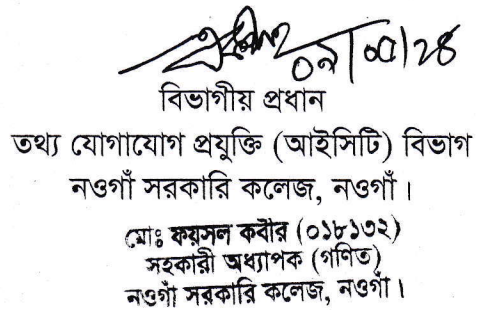 ০৯/০৫/২৪
বিভাগীয় প্রধান
তথ্য যোগাযোগ প্রযুক্তি (আইসিটি) বিভাগ
নওগাঁ সরকারি কলেজ, নওগাঁ।
মোঃ ফয়সল কবীর (০১৮১৩২)
সহকারী অধ্যাপক (গণিত)
নওগাঁ সরকারি কলেজ, নওগাঁ।